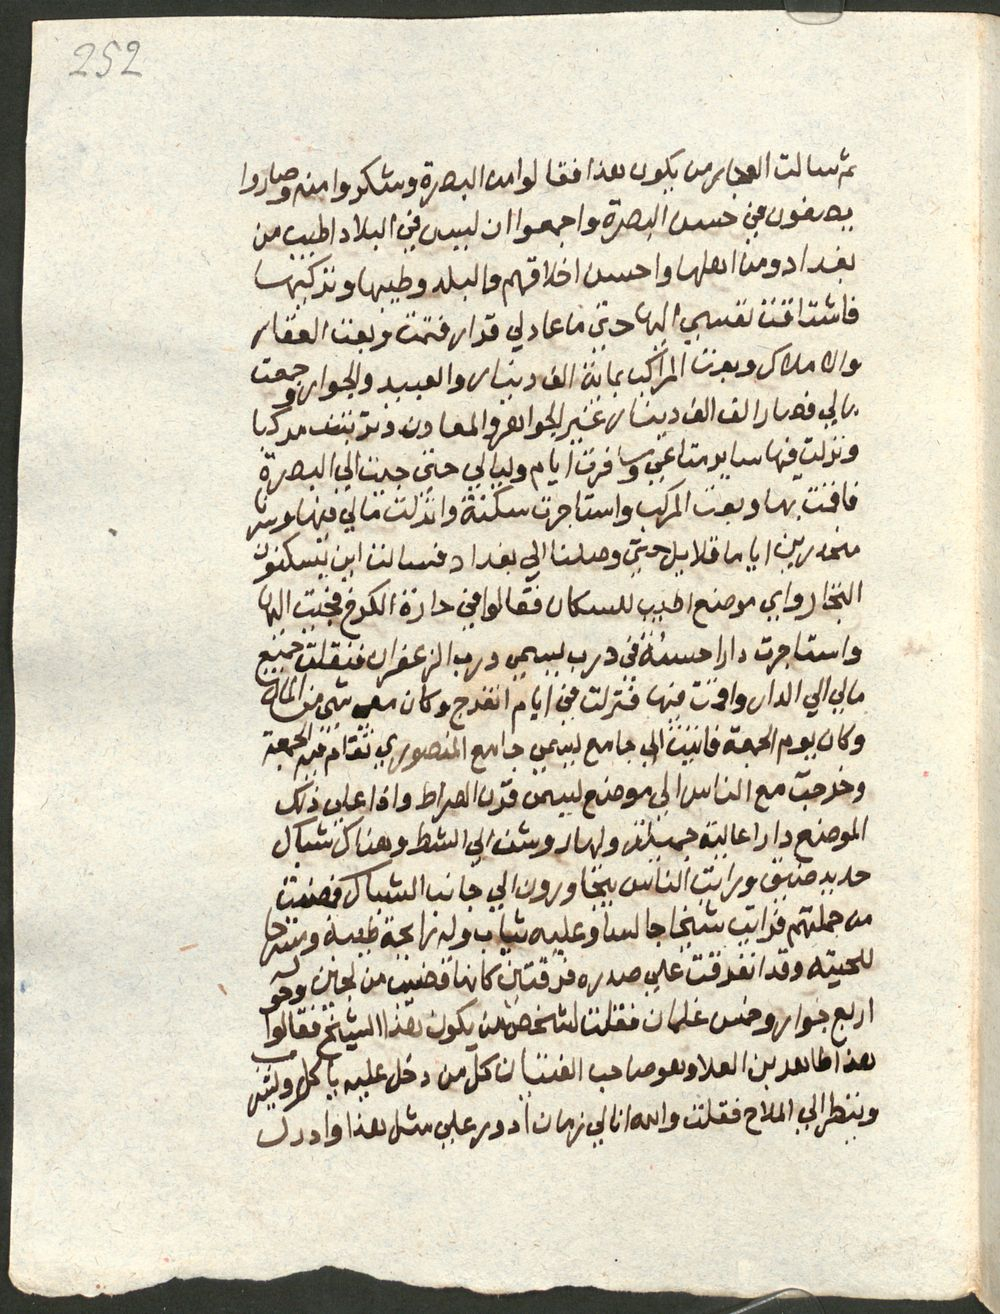 252
ثم سالت التجار من يكون هذا فقالوا من البصرة وشكروا منهم وصاروا
يصفون في حسن البصرة واجمعوا ان ليس في البلاد اطيب من
بغداد ومن اهلها واحسن اخلاقهم والبلد وطيبها وتركيبها
فاشتاقت نفسي اليها حتى ما عاد لي قرار فقمت وبعت العقار
والاملاك وبعت المراكب بماية الف دينار والعبيد والجوار وجمعت
مالي فصار الف الف دينار غير الجواهر والمعادن مركبا
ونزلت فيها ساير متاعي وسافرت ايام وليالي حتى جيت الي البصرة
فاقمت بها وبعت المركب واستاجرت سكنة وانزلت مالي فيها وسرنا
منحدرين اياما قلايل حتى وصلنا الي بغداد فسالت اين يسكنون
التجار واي موضع اطيب للسكان فقالوا في حارة الكرخ فجيت اليها
واستاجرت دارا حسنة في درب يسمى درب الزعفران فنقلت جميع
مالي الي الدار واقمت فيها فنزلت في ايام اتفرج وكان معي شي من المال
وكان يوم الجمعة فاتيت الي جامع يسمى جامع المنصوري تقام فيه الجمعة
وخرجت مع الناس الي موضع يسمى قرن الصراط واذا علي ذلك
الموضع دارا عالية جميلة ولها روشن الي الشط وهناك شباك
حديد ضيق ورايت الناس يتجاورون الي جانب الشباك فمضيت
من جملتهم فرايت شيخا جالسا وعليه ثياب وله رايحة طيبة ومسرحا
للحيته وقد انفرقت علي صدره فرقتين كانها قضيب من لجين وحوله
اربع جوار وخمس غلمان فقلت لشخص من يكون هذا الشيخ فقالوا
هذا طاهر بن العلا وهو صاحب الفتيان كل من دخل عليه ياكل ويشرب
وينظر الي الملاح فقلت والله انا لي زمان ادور علي مثل هذا